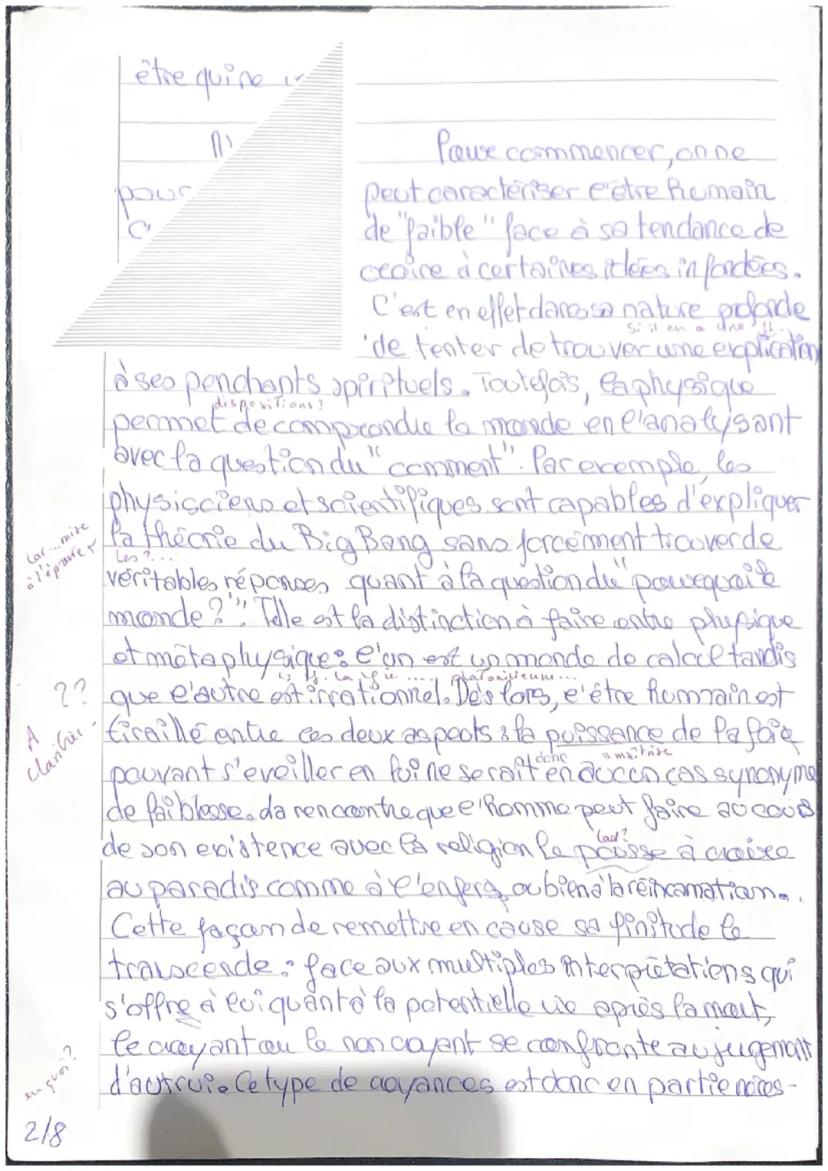 être qui ne
pour
Pour commencer, on ne
peut caractériser l'être humain
de "faible" face à sa tendance de
croire à certaines idées infondées.
C'est en effet dans sa nature profonde
si il en a une
de tenter de trouver une explication
à ses penchants spirituels. Toutefois, la physique
dispositions ?
permet de comprendre le monde en l'analysant
avec la question du "comment". Par exemple, les
physisciens et scientifiques sont capables d'expliquer
la théorie du Big Bang sans forcément trouver de
car... mise
à l'épreuve
Les ?...
véritables réponses quant à la question du "pourquoi le
monde ?". Telle est la distinction à faire entre physique
et métaphysique : l'un est un monde de calcul tandis
??
que l'autre est irrationnel. Dès lors, l'être humain est
A
clarifier
tiraillé entre ces deux aspects : la puissance de la foi
donc
pouvant s'éveiller en lui ne serait en aucun cas synonyme
de faiblesse. La rencontre que l'Homme peut faire au cours
de son existence avec la religion le pousse à croire
au paradis comme à l'enfer, ou bien à la réincarnation.
Cette façon de remettre en cause sa finitude le
transcende : face aux multiples interprétations qui
s'offre à lui quant à la potentielle vie après la mort,
le croyant ou le non coyant se confronte au jugement
en quoi ?
d'autrui. Ce type de croyances est donc en partie néces-
2/8